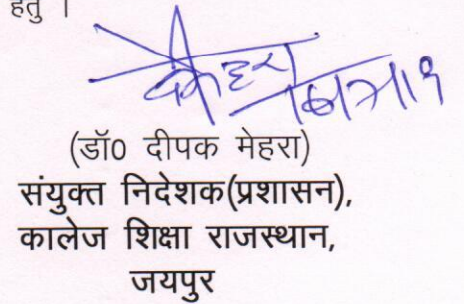 हेतु ।
(डॉ0 दीपक मेहरा)
संयुक्त निदेशक(प्रशासन),
कालेज शिक्षा राजस्थान,
जयपुर